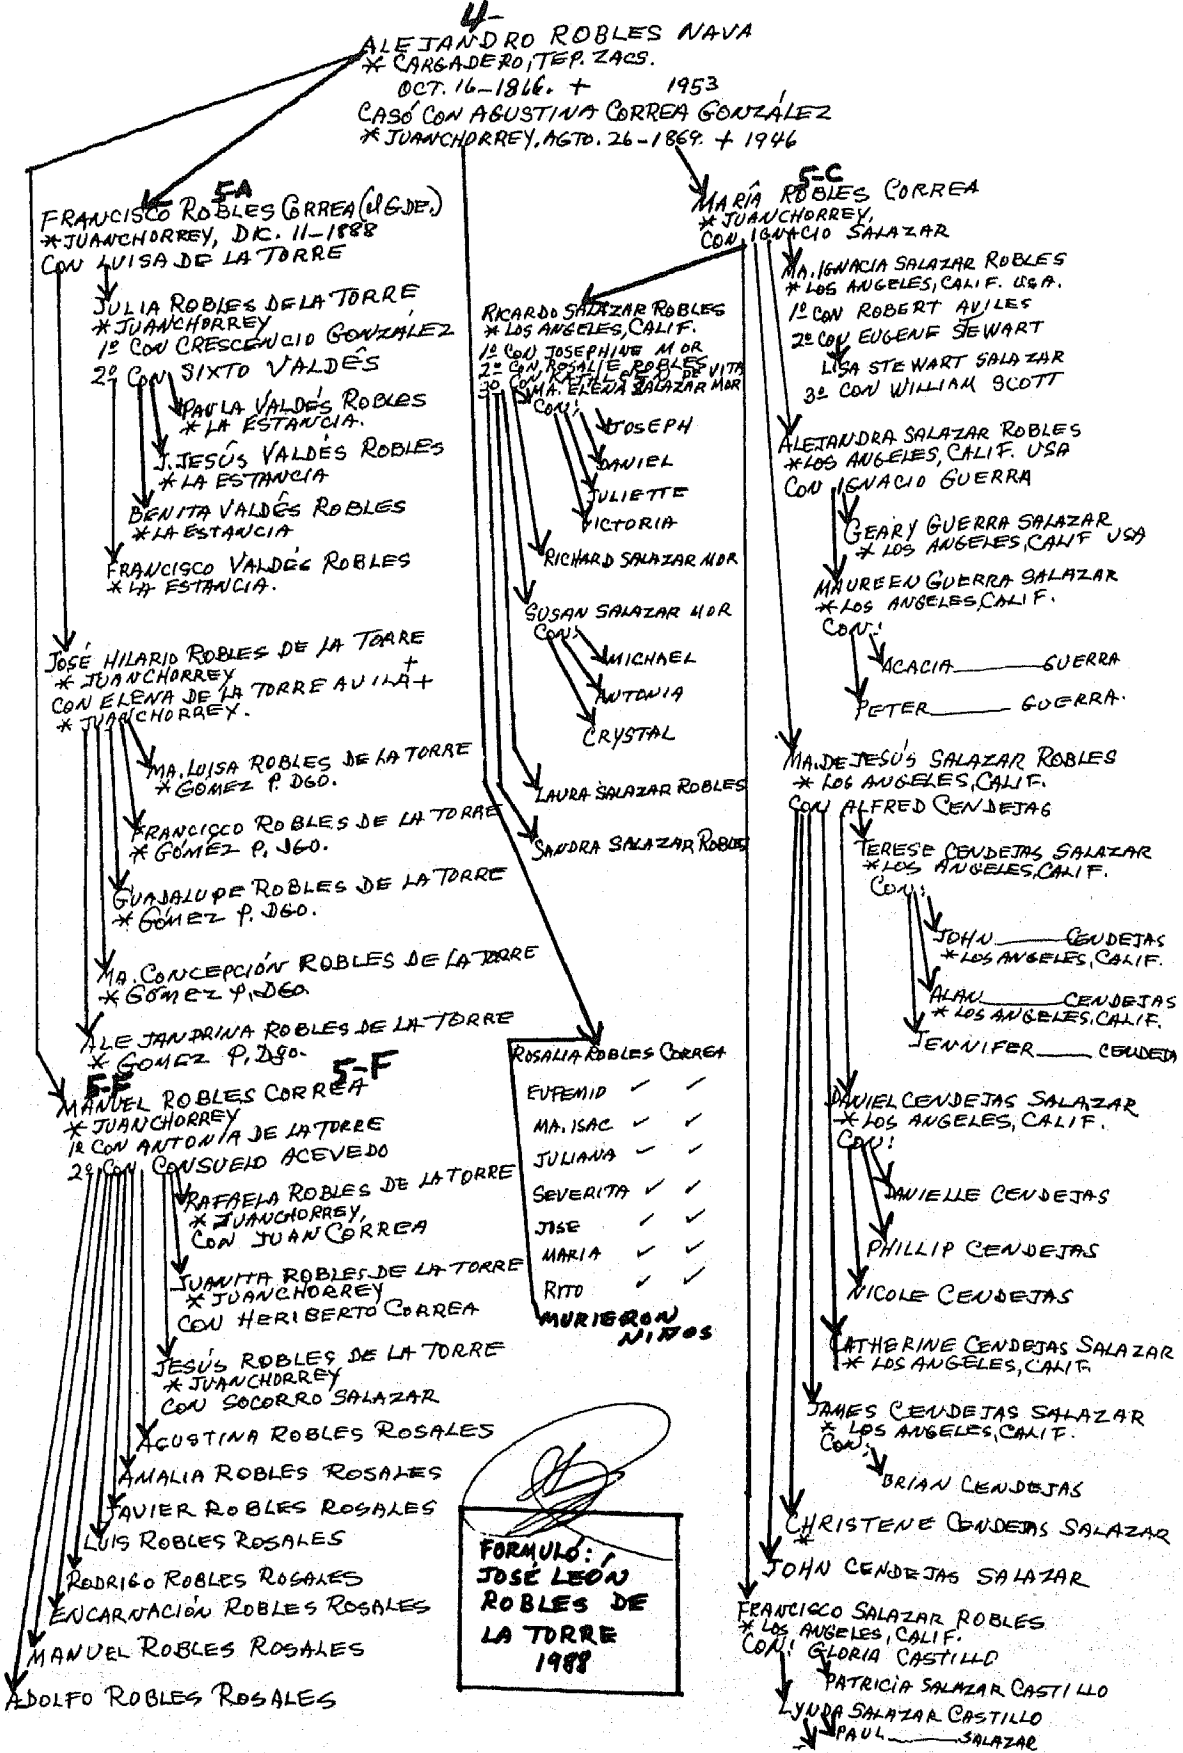 4-
ALEJANDRO ROBLES NAVA
* CARGADERO, TEP. ZACS.
OCT. 16-1866. + 1953
CASÓ CON AGUSTINA CORREA GONZÁLEZ
* JUANCHORREY. AGTO. 26-1869. + 1946
5-A
FRANCISCO ROBLES CORREA (el GDE.)
* JUANCHORREY, DIC. 11-1888
CON LUISA DE LA TORRE
JULIA ROBLES DE LA TORRE
* JUANCHORREY
1º CON CRESCENCIO GONZÁLEZ
2º CON SIXTO VALDÉS
PAULA VALDÉS ROBLES
* LA ESTANCIA.
J. JESÚS VALDÉS ROBLES
* LA ESTANCIA
BENITA VALDÉS ROBLES
* LA ESTANCIA
FRANCISCO VALDÉS ROBLES
* LA ESTANCIA.
JOSÉ HILARIO ROBLES DE LA TORRE
* JUANCHORREY +
CON ELENA DE LA TORRE AVILA +
* JUANCHORREY.
MA. LUISA ROBLES DE LA TORRE
* GOMEZ P. DGO.
FRANCISCO ROBLES DE LA TORRE
* GÓMEZ P. DGO.
GUADALUPE ROBLES DE LA TORRE
* GÓMEZ P. DGO.
MA. CONCEPCIÓN ROBLES DE LA TORRE
* GÓMEZ P. DGO.
ALEJANDRINA ROBLES DE LA TORRE
* GOMEZ P. Dgo.
5-E 5-F
MANUEL ROBLES CORREA
* JUANCHORREY
1º CON ANTONIA DE LA TORRE
2º CON CONSUELO ACEVEDO
RAFAELA ROBLES DE LA TORRE
* JUANCHORREY,
CON JUAN CORREA
JUANITA ROBLES DE LA TORRE
* JUANCHORREY
CON HERIBERTO CORREA
JESÚS ROBLES DE LA TORRE
* JUANCHORREY
CON SOCORRO SALAZAR
AGUSTINA ROBLES ROSALES
AMALIA ROBLES ROSALES
JAVIER ROBLES ROSALES
LUIS ROBLES ROSALES
RODRIGO ROBLES ROSALES
ENCARNACIÓN ROBLES ROSALES
MANUEL ROBLES ROSALES
ADOLFO ROBLES ROSALES
5-C
MARÍA ROBLES CORREA
* JUANCHORREY,
CON IGNACIO SALAZAR
RICARDO SALAZAR ROBLES
* LOS ANGELES, CALIF.
1º CON JOSEPHINE MOR
2º CON ROSALIE ROBLES
3º CON KATHLEEN DE VITA
MA. ELENA SALAZAR MOR
CON:
JOSEPH
DANIEL
JULIETTE
VICTORIA
RICHARD SALAZAR MOR
SUSAN SALAZAR MOR
CON:
MICHAEL
ANTONIA
CRYSTAL
LAURA SALAZAR ROBLES
SANDRA SALAZAR ROBLES
ROSALIA ROBLES CORREA
EUFEMIO ✓ ✓
MA. ISAC ✓ ✓
JULIANA ✓ ✓
SEVERITA ✓ ✓
JOSE ✓ ✓
MARIA ✓ ✓
RITO ✓ ✓
MURIERON
NIÑOS
FORMULÓ:
JOSÉ LEÓN
ROBLES DE
LA TORRE
1988
MA. IGNACIA SALAZAR ROBLES
* LOS ANGELES, CALIF. USA.
1º CON ROBERT AVILES
2º CON EUGENE STEWART
LISA STEWART SALAZAR
3º CON WILLIAM SCOTT
ALEJANDRA SALAZAR ROBLES
* LOS ANGELES, CALIF. USA
CON IGNACIO GUERRA
GEARY GUERRA SALAZAR
* LOS ANGELES, CALIF USA
MAUREEN GUERRA SALAZAR
* LOS ANGELES, CALIF.
CON:
ACACIA______GUERRA
PETER______ GUERRA.
MA. DE JESÚS SALAZAR ROBLES
* LOS ANGELES, CALIF.
CON ALFRED CENDEJAS
TERESE CENDEJAS SALAZAR
* LOS ANGELES, CALIF.
CON:
JOHN______CENDEJAS
* LOS ANGELES, CALIF.
ALAN______CENDEJAS
* LOS ANGELES, CALIF.
JENNIFER____ CENDEJA
DANIEL CENDEJAS SALAZAR
* LOS ANGELES, CALIF.
CON:
DANIELLE CENDEJAS
PHILLIP CENDEJAS
NICOLE CENDEJAS
CATHERINE CENDEJAS SALAZAR
* LOS ANGELES, CALIF.
JAMES CENDEJAS SALAZAR
* LOS ANGELES, CALIF.
CON:
BRIAN CENDEJAS
CHRISTENE CENDEJAS SALAZAR
*
JOHN CENDEJAS SALAZAR
FRANCISCO SALAZAR ROBLES
* LOS ANGELES, CALIF.
CON: GLORIA CASTILLO
PATRICIA SALAZAR CASTILLO
LYNDA SALAZAR CASTILLO
PAUL______SALAZAR